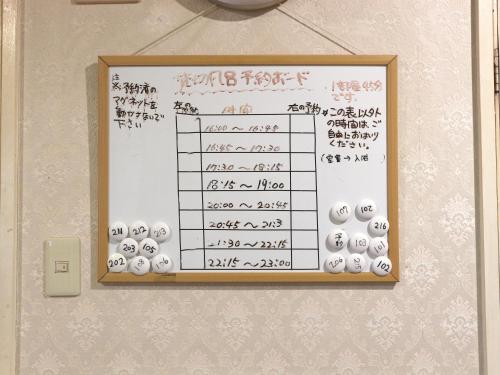 貸切風呂予約ボード
1部屋45分
です。
注
※予約済の
マグネットを
動かさないで
下さい
左の予約
時間
右の予約
16:00～16:45
16:45～17:30
17:30～18:15
18:15～19:00
20:00～20:45
20:45～21:3
21:30～22:15
22:15～23:00
※この表以外
の時間は、ご
自由にお入り
ください。
211
212
213
203
105
202
108
106
107
102
216
予約
103
101
206
215
102